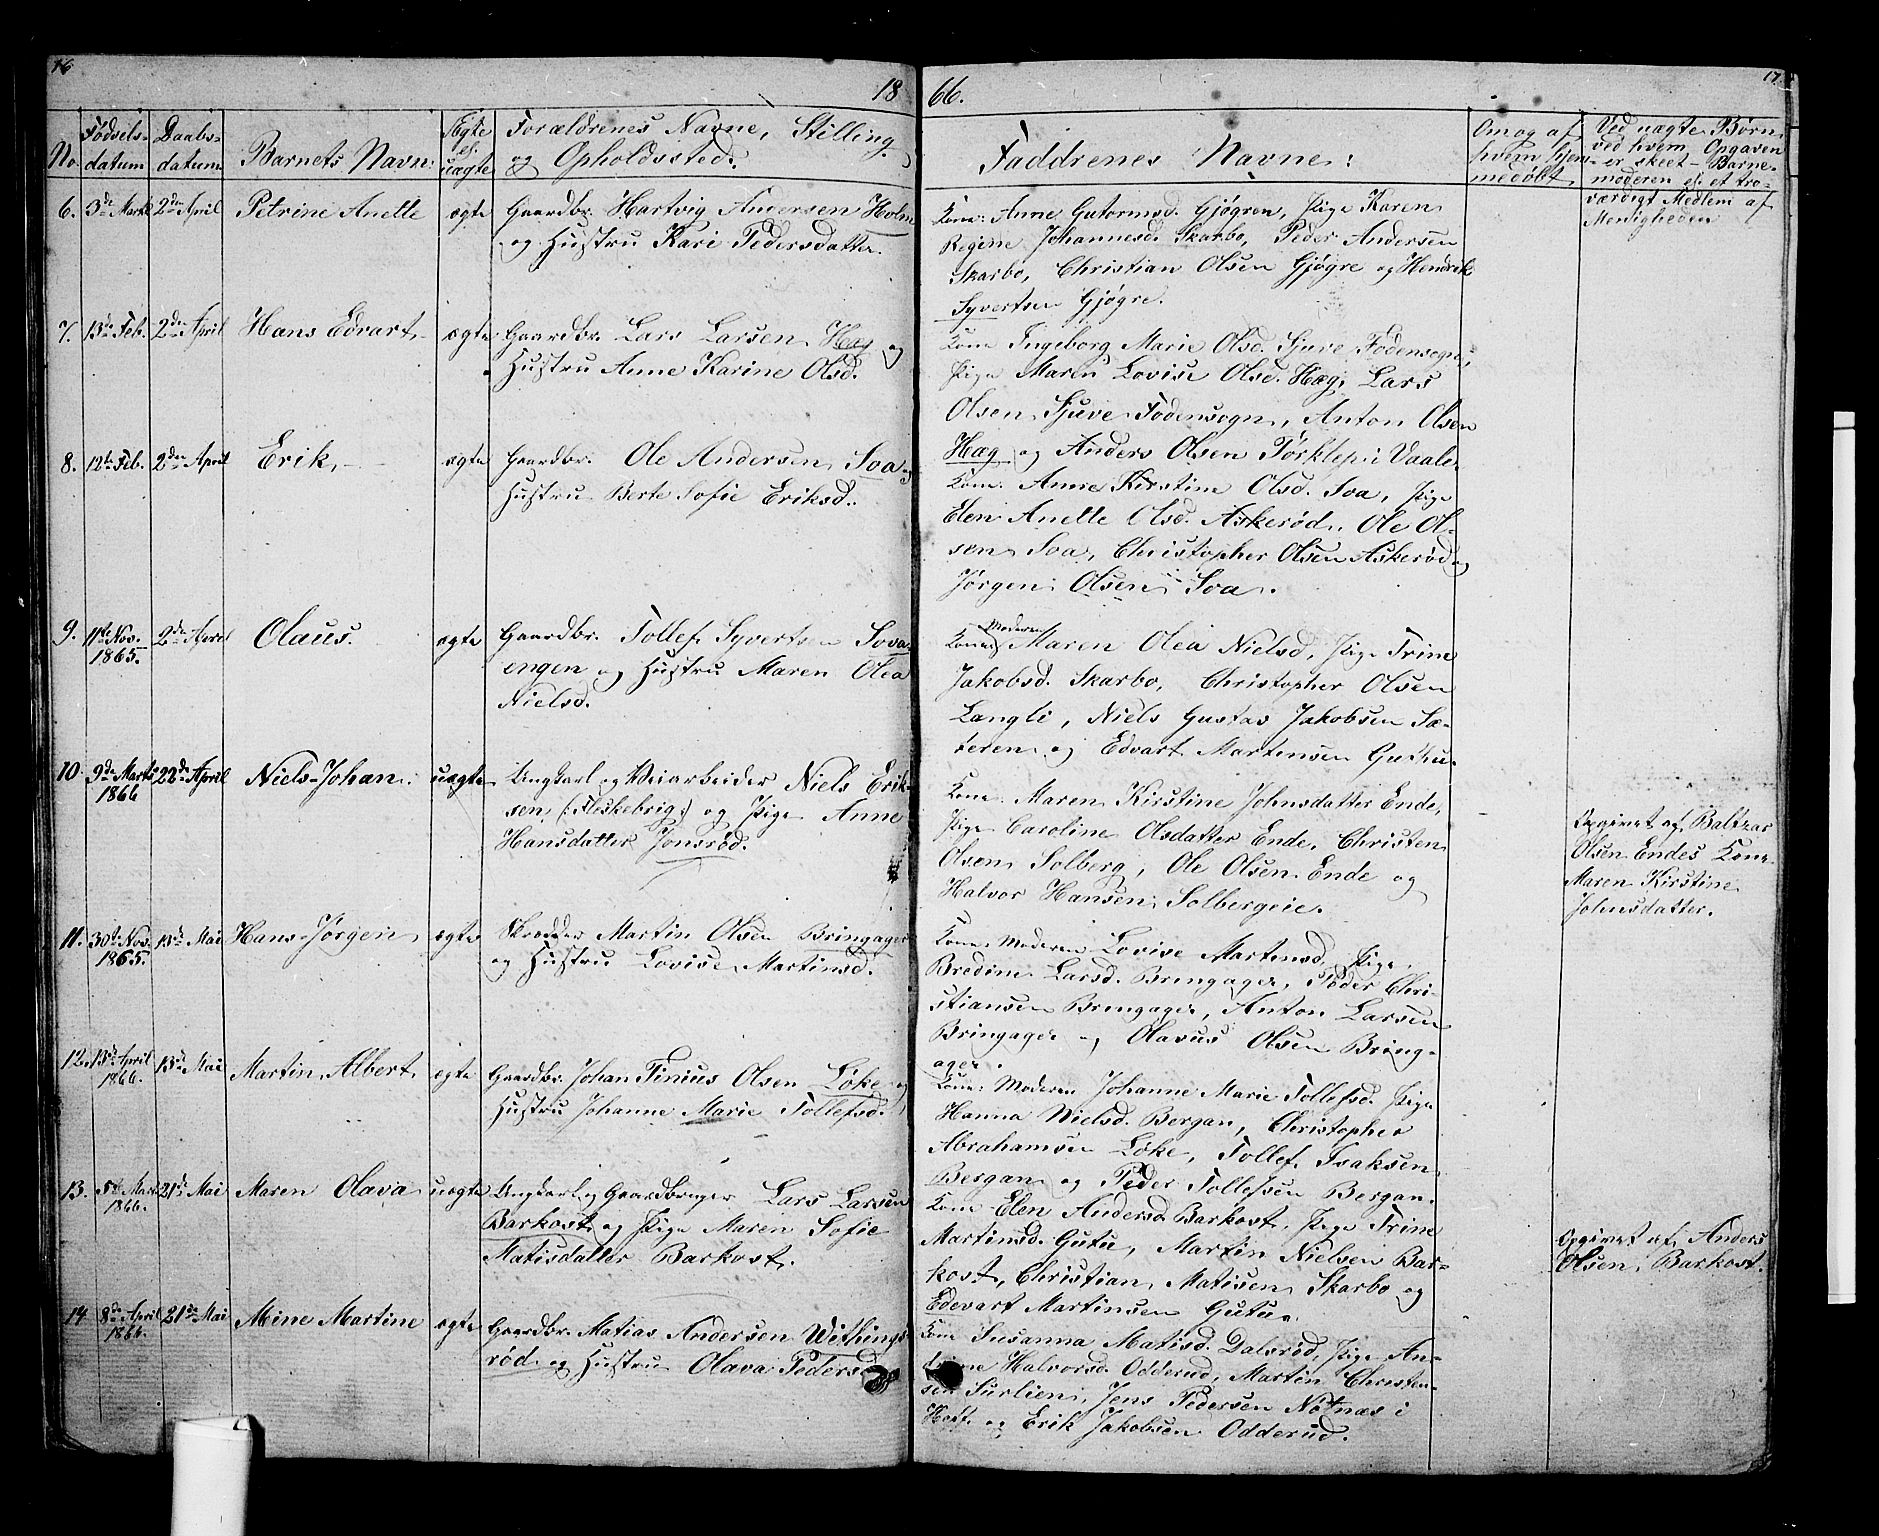 16
18
66.
17.
No.
Fødsels-
datum
Daabs-
datum
Barnets Navn:
Ægte
el.
uægte
Forældrenes Navne, Stilling
og Opholdssted.
Faddrenes Navne:
Om og af
hvem hjem-
medøbt
Ved uægte Børn
ved hvem Opgaven
er skeet - Barne-
moderen el. et tro-
værdigt Medlem af
Menigheden
6. 3de Marts 2den April Petrine Anette ægte Gaardbr. Hartvig Andersen Holm
og Hustru Kari Pedersdatter.
Kone: Anne Gutormsd. Gjøgren, Pige Karen
Regine Johannesd. Skarbo, Peder Andersen
Skarbo, Christian Olsen Gjøgre og Hendrik
Syvertsen Gjøgre.
7. 13de Feb. 2den April Hans Edvart, ægte Gaardbr. Lars Larsen Hæg og
Hustru Anne Karine Olsd.
Kone Ingeborg Marie Olsd. Sjuve Fodensogn,
Pige Maren Lovise Olsd. Hæg, Lars
Olsen Sjuve Fodensogn, Anton Olsen
Hæg og Anders Olsen Torklep i Vaale.
8. 12te Feb. 2den April Erik, ægte Gaardbr. Ole Andersen Soa og
Hustru Berte Sofie Eriksd.
Kone: Anne Kirstine Olsd. Soa, Pige
Elen Anette Olsd. Askerød, Ole Ol-
sen Soa, Christopher Olsen Askerød og
Jørgen Olsen Soa.
9. 11te Nov. 2den April Olaus. ægte Gaardbr. Tollef Syvertsen Sova-
1865.
engen og Hustru Maren Olea
Nielsd.
Kone Moderen Maren Olea Nielsd, Pige Trine
Jakobsd. Skarbo, Christopher Olsen
Langli, Niels Gustav Jakobsen Sæ-
teren og Edvart Martinsen Guthu.
10. 9de Marts 22de April Niels Johan uægte Ungkarl og Veiarbeider Niels Erik-
1866
sen (:Fleskebrig:) og Pige Anne
Hansdatter Jonsrød.
Kone Maren Kirstine Johnsdatter Ende,
Pige Caroline Olsdatter Ende, Christen
Olsen Solberg, Ole Olsen Ende og
Halvor Hansen Solbergeie.
Opgivet af Baltzar
Olsen Endes Kone
Maren Kirstine
Johnsdatter.
11. 30te Nov. 13de Mai Hans Jørgen ægte Skrædder Martin Olsen Bringager
1865.
og Hustru Lovise Martinsd.
Kone Moderen Lovise Martinsd, Pige
Bredine Larsd. Bringager, Peder Chri-
stiansen Bringager, Anton Larsen
Bringager og Olavus Olsen Bring-
ager.
12. 13de April 13de Mai Martin Albert ægte Gaardbr. Johan Tinius Olsen Løke og
1866.
Hustru Johanne Marie Tollefsd.
Kone: Moderen Johanne Marie Tollefsd. Pige
Hanna Nielsd. Bergan, Christopher
Abrahamsen Løke, Tollef Isaksen
Bergan og Peder Tollefsen Bergan.
13. 5te Marts 21de Mai Maren Olava uægte Ungkarl og Gaardbruger Lars Larsen
1866.
Barkost og Pige Maren Sofie
Matisdatter Barkost.
Kone Elen Andersd. Barkost, Pige Trine
Martinsd. Gutu, Martin Nielsen Bar-
kost, Christian Matisen Skarbo og
Edevart Martinsen Gutu.
Opgivet af Anders
Olsen Barkost.
14 8de April 21de Mai Mine Martine ægte Gaardbr. Matias Andersen Withings-
1866.
rød og Hustru Olava Pedersd.
Kone Susanna Matisd. Dalsrød, Pige An-
drine Halvorsd. Odderud, Martin Christen-
sen Surlien, Jens Pedersen Nøtnæs i
Hoff og Erik Jakobsen Odderud.